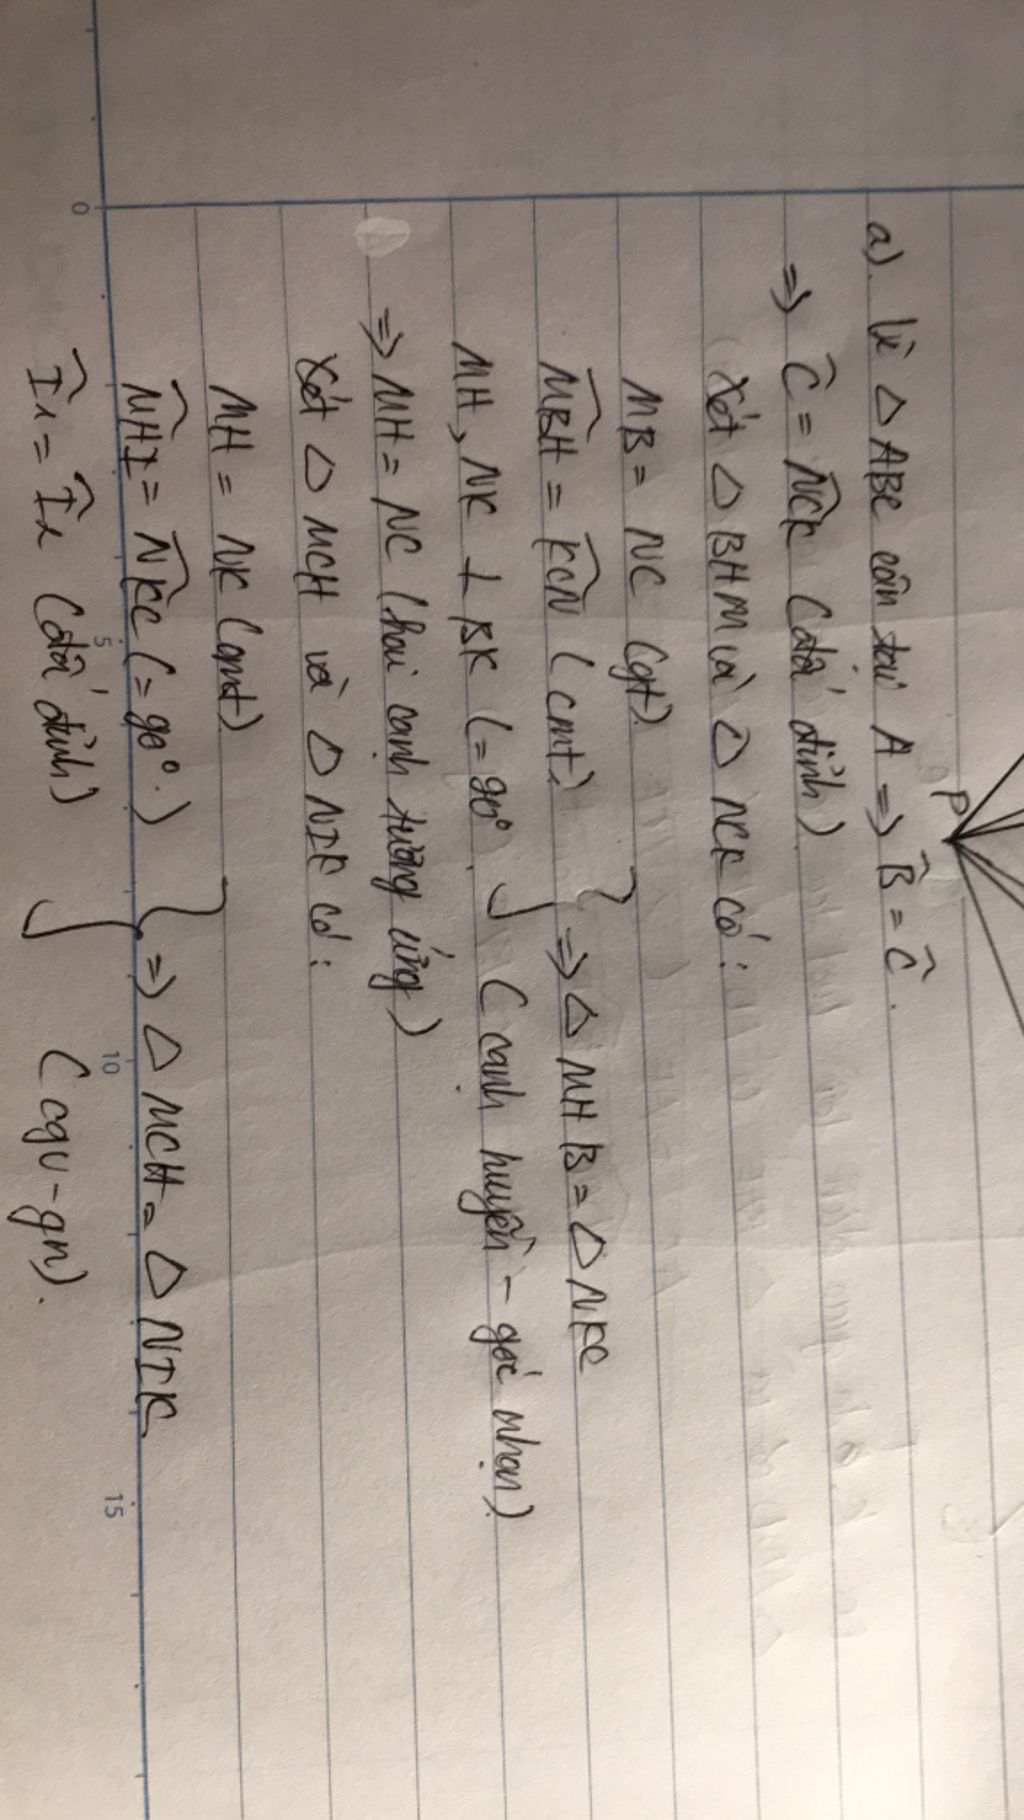 P
a). Vì △ ABC cân tại A => B̂ = Ĉ.
=> Ĉ = NCK (đối đỉnh)
Xét △ BHM và △ NCK có:
MB = NC (gt).
MBH = KCN (cmt) } => △ MHB = △ NKC
MH, NK ⊥ BK (= 90°. (cạnh huyền - góc nhọn)
=> MH = NC (hai cạnh tương ứng)
Xét △ MCH và △ NIK có:
MH = NK (cmt)
MHI = NKC (= 90°.) } => △ MCH = △ NIK
Î1 = Î2 (đối đỉnh) (cgv-gn).
0 5 10 15